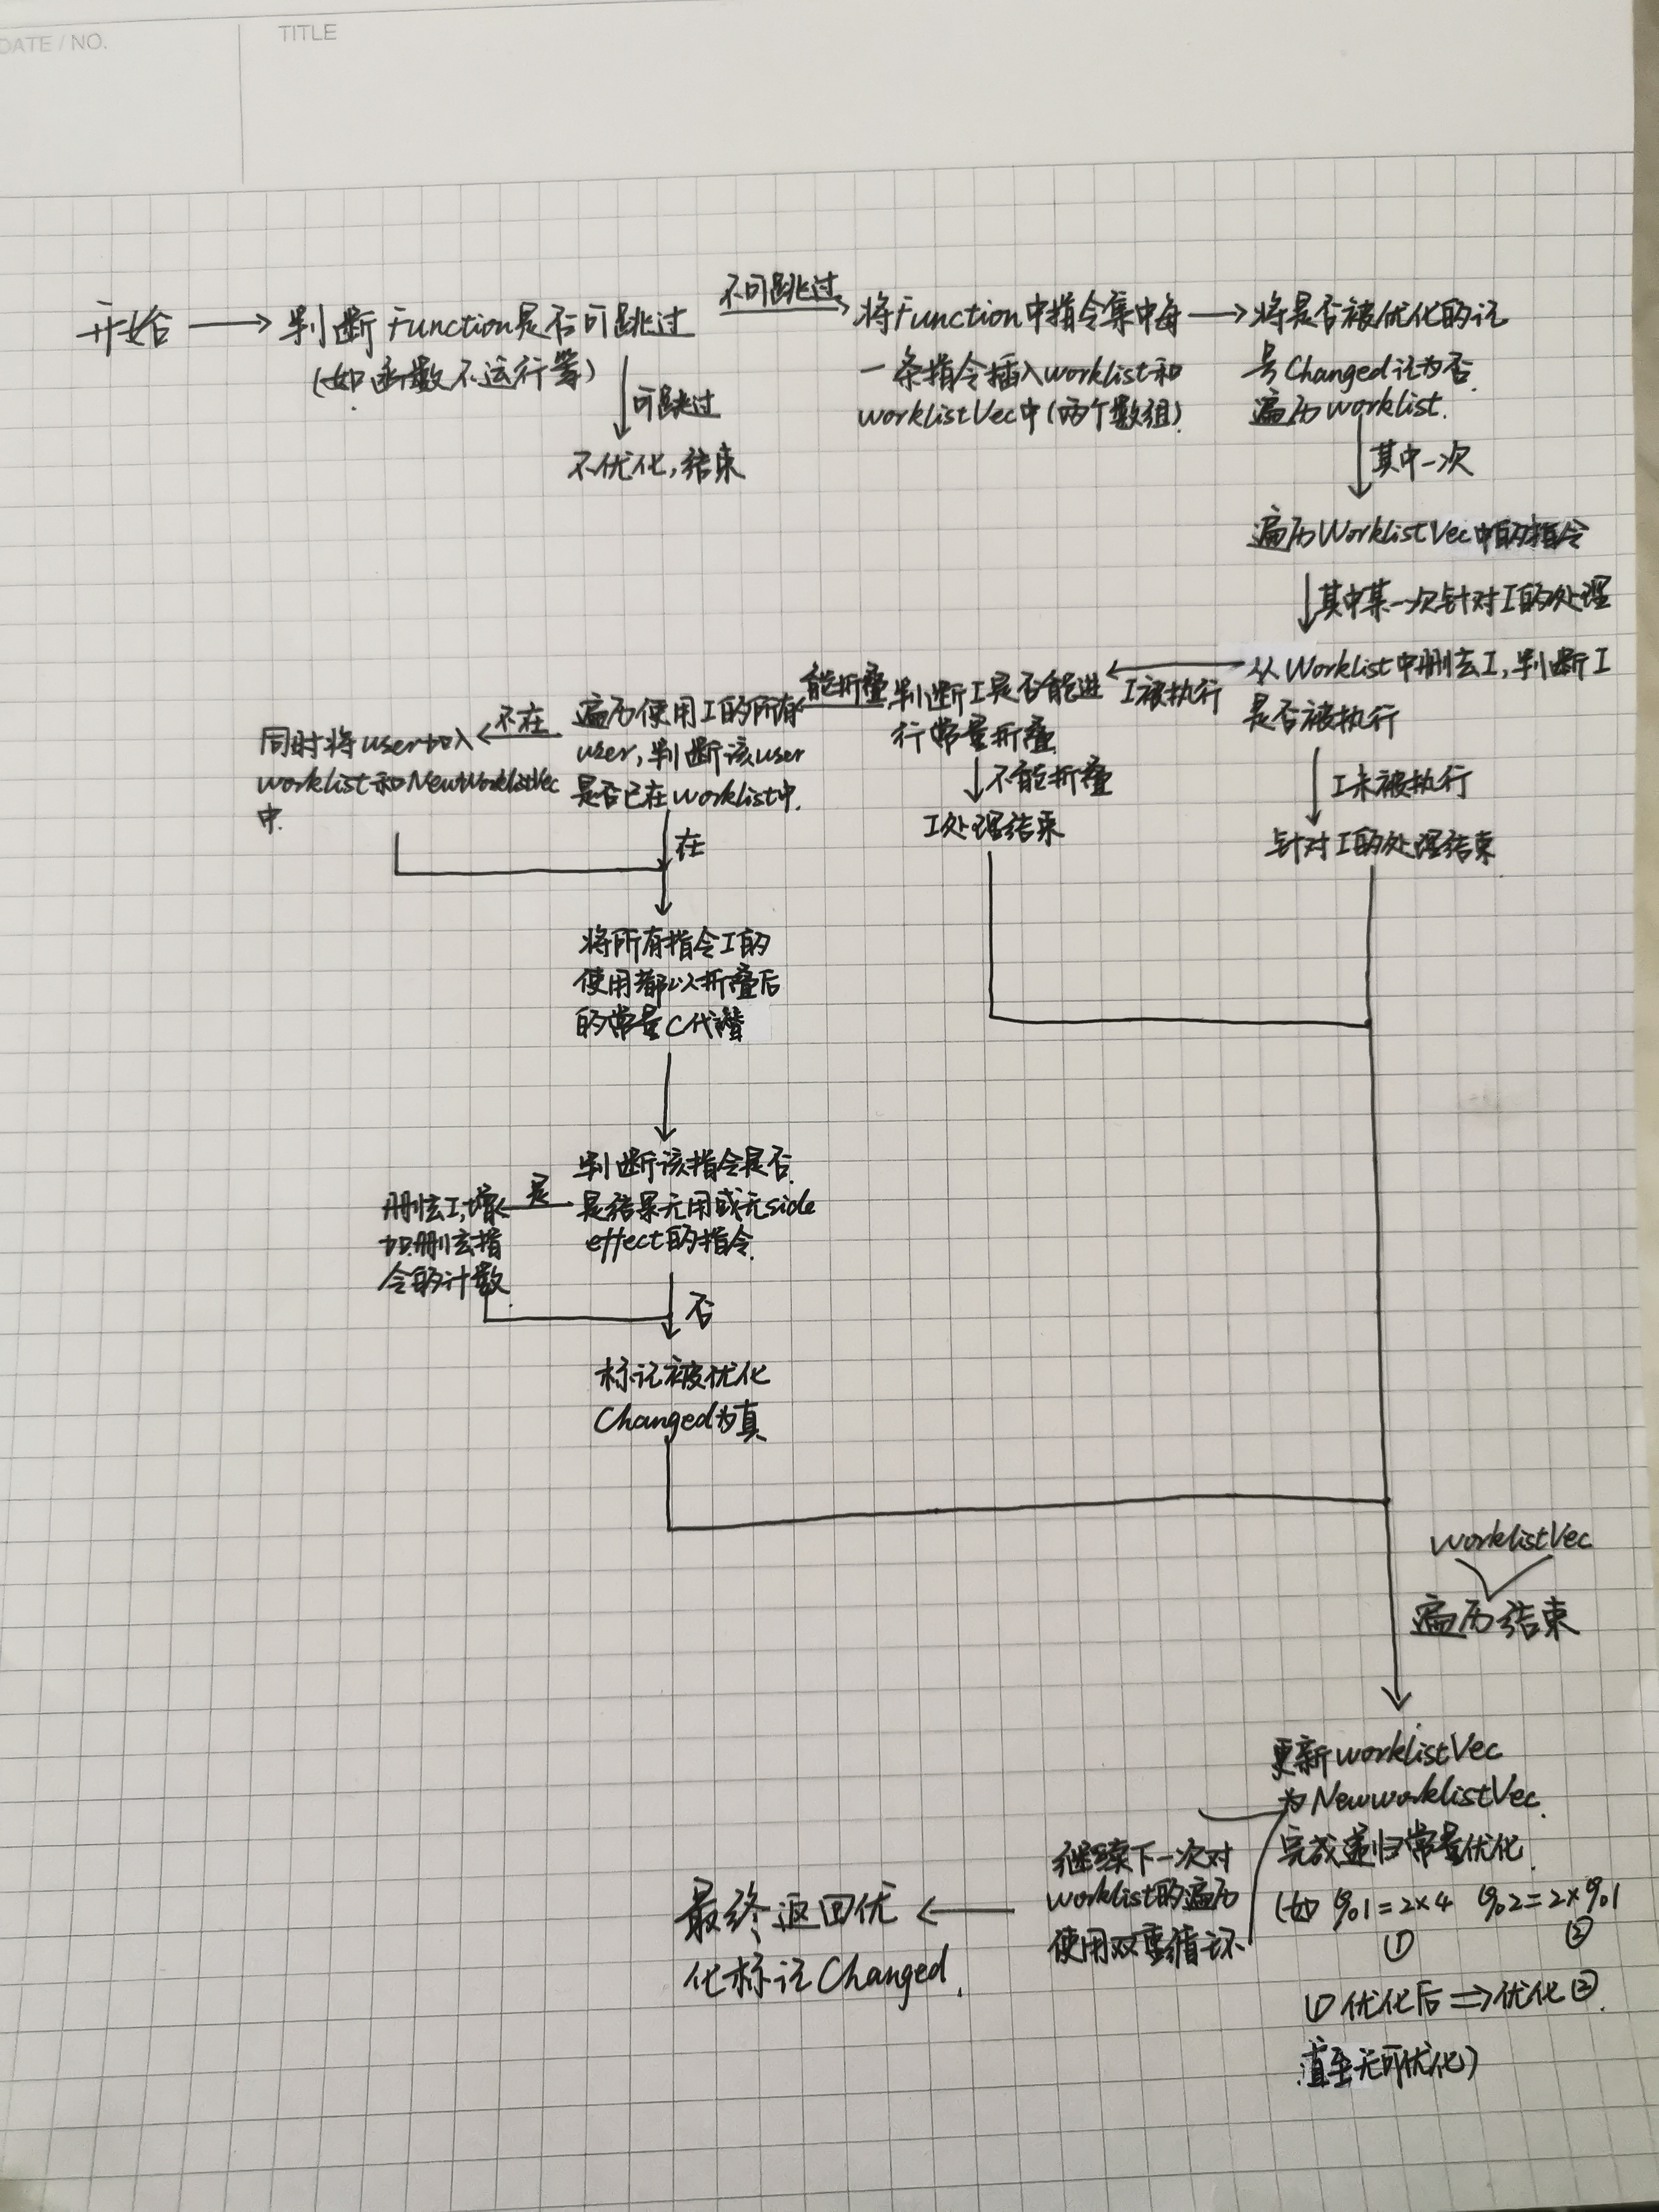 DATE / NO.
TITLE
开始
判断Function是否可跳过
(如函数不运行等)
可跳过
不优化,结束
不可跳过
将Function中指令集中每
一条指令插入worklist和
worklistVec中(两个数组).
将是否被优化的记
号Changed记为否.
遍历worklist.
其中一次
遍历WorklistVec中的指令
其中某一次针对I的处理
从Worklist中删去I,判断I
是否被执行
I未被执行
针对I的处理结束.
I被执行
判断I是否能进
行常量折叠.
不能折叠
I处理结束
能折叠
遍历使用I的所有
user,判断该user
是否已在worklist中.
不在
同时将user加入
worklist和NewWorklistVec
中.
在
将所有指令I的
使用都以折叠后
的常量C代替
判断该指令是否
是结果无用或无side
effect的指令.
是
删去I,增
加删去指
令的计数.
否
标记被优化
Changed为真
worklistVec
遍历结束
更新worklistVec
为NewworklistVec.
完成递归常量优化.
(如 %1=2×4 %2=2×%1
① ②
①优化后⇒优化②.
直至无可优化)
继续下一次对
worklist的遍历
使用双重循环
最终返回优
化标记Changed.